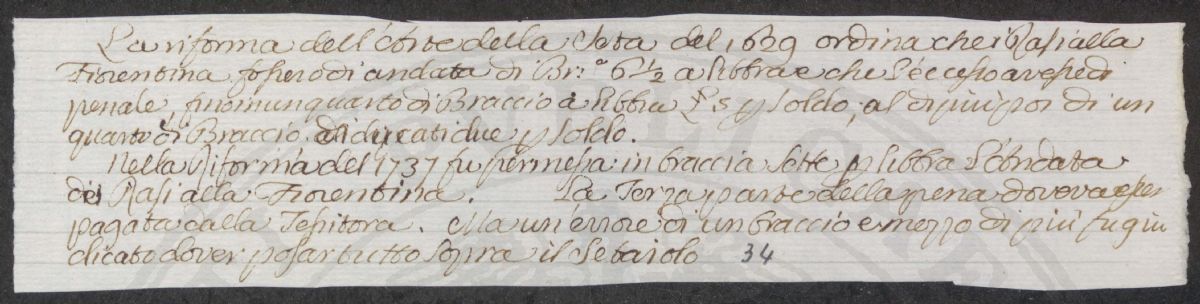 La riforma dell'Arte della Seta del 1629 ordina che i Rasi alla
Fiorentina fossero di andata di Br:ª 6 1/2 a libbra e che l'eccesso avesse di
penale, fino in un quarto di Braccio a libbra L s p soldo, al di più poi di un
quarto di Braccio di ducati due p soldo.
Nella Riforma del 1737 fu permessa in braccia sette p libbra l'andata
dei Rasi alla Fiorentina. La Terza parte della pena doveva esser
pagata dalla Tessitora. Ma un'errore di un braccio e mezzo di più fu giu
dicato dover posar tutto sopra il Setaiolo 34